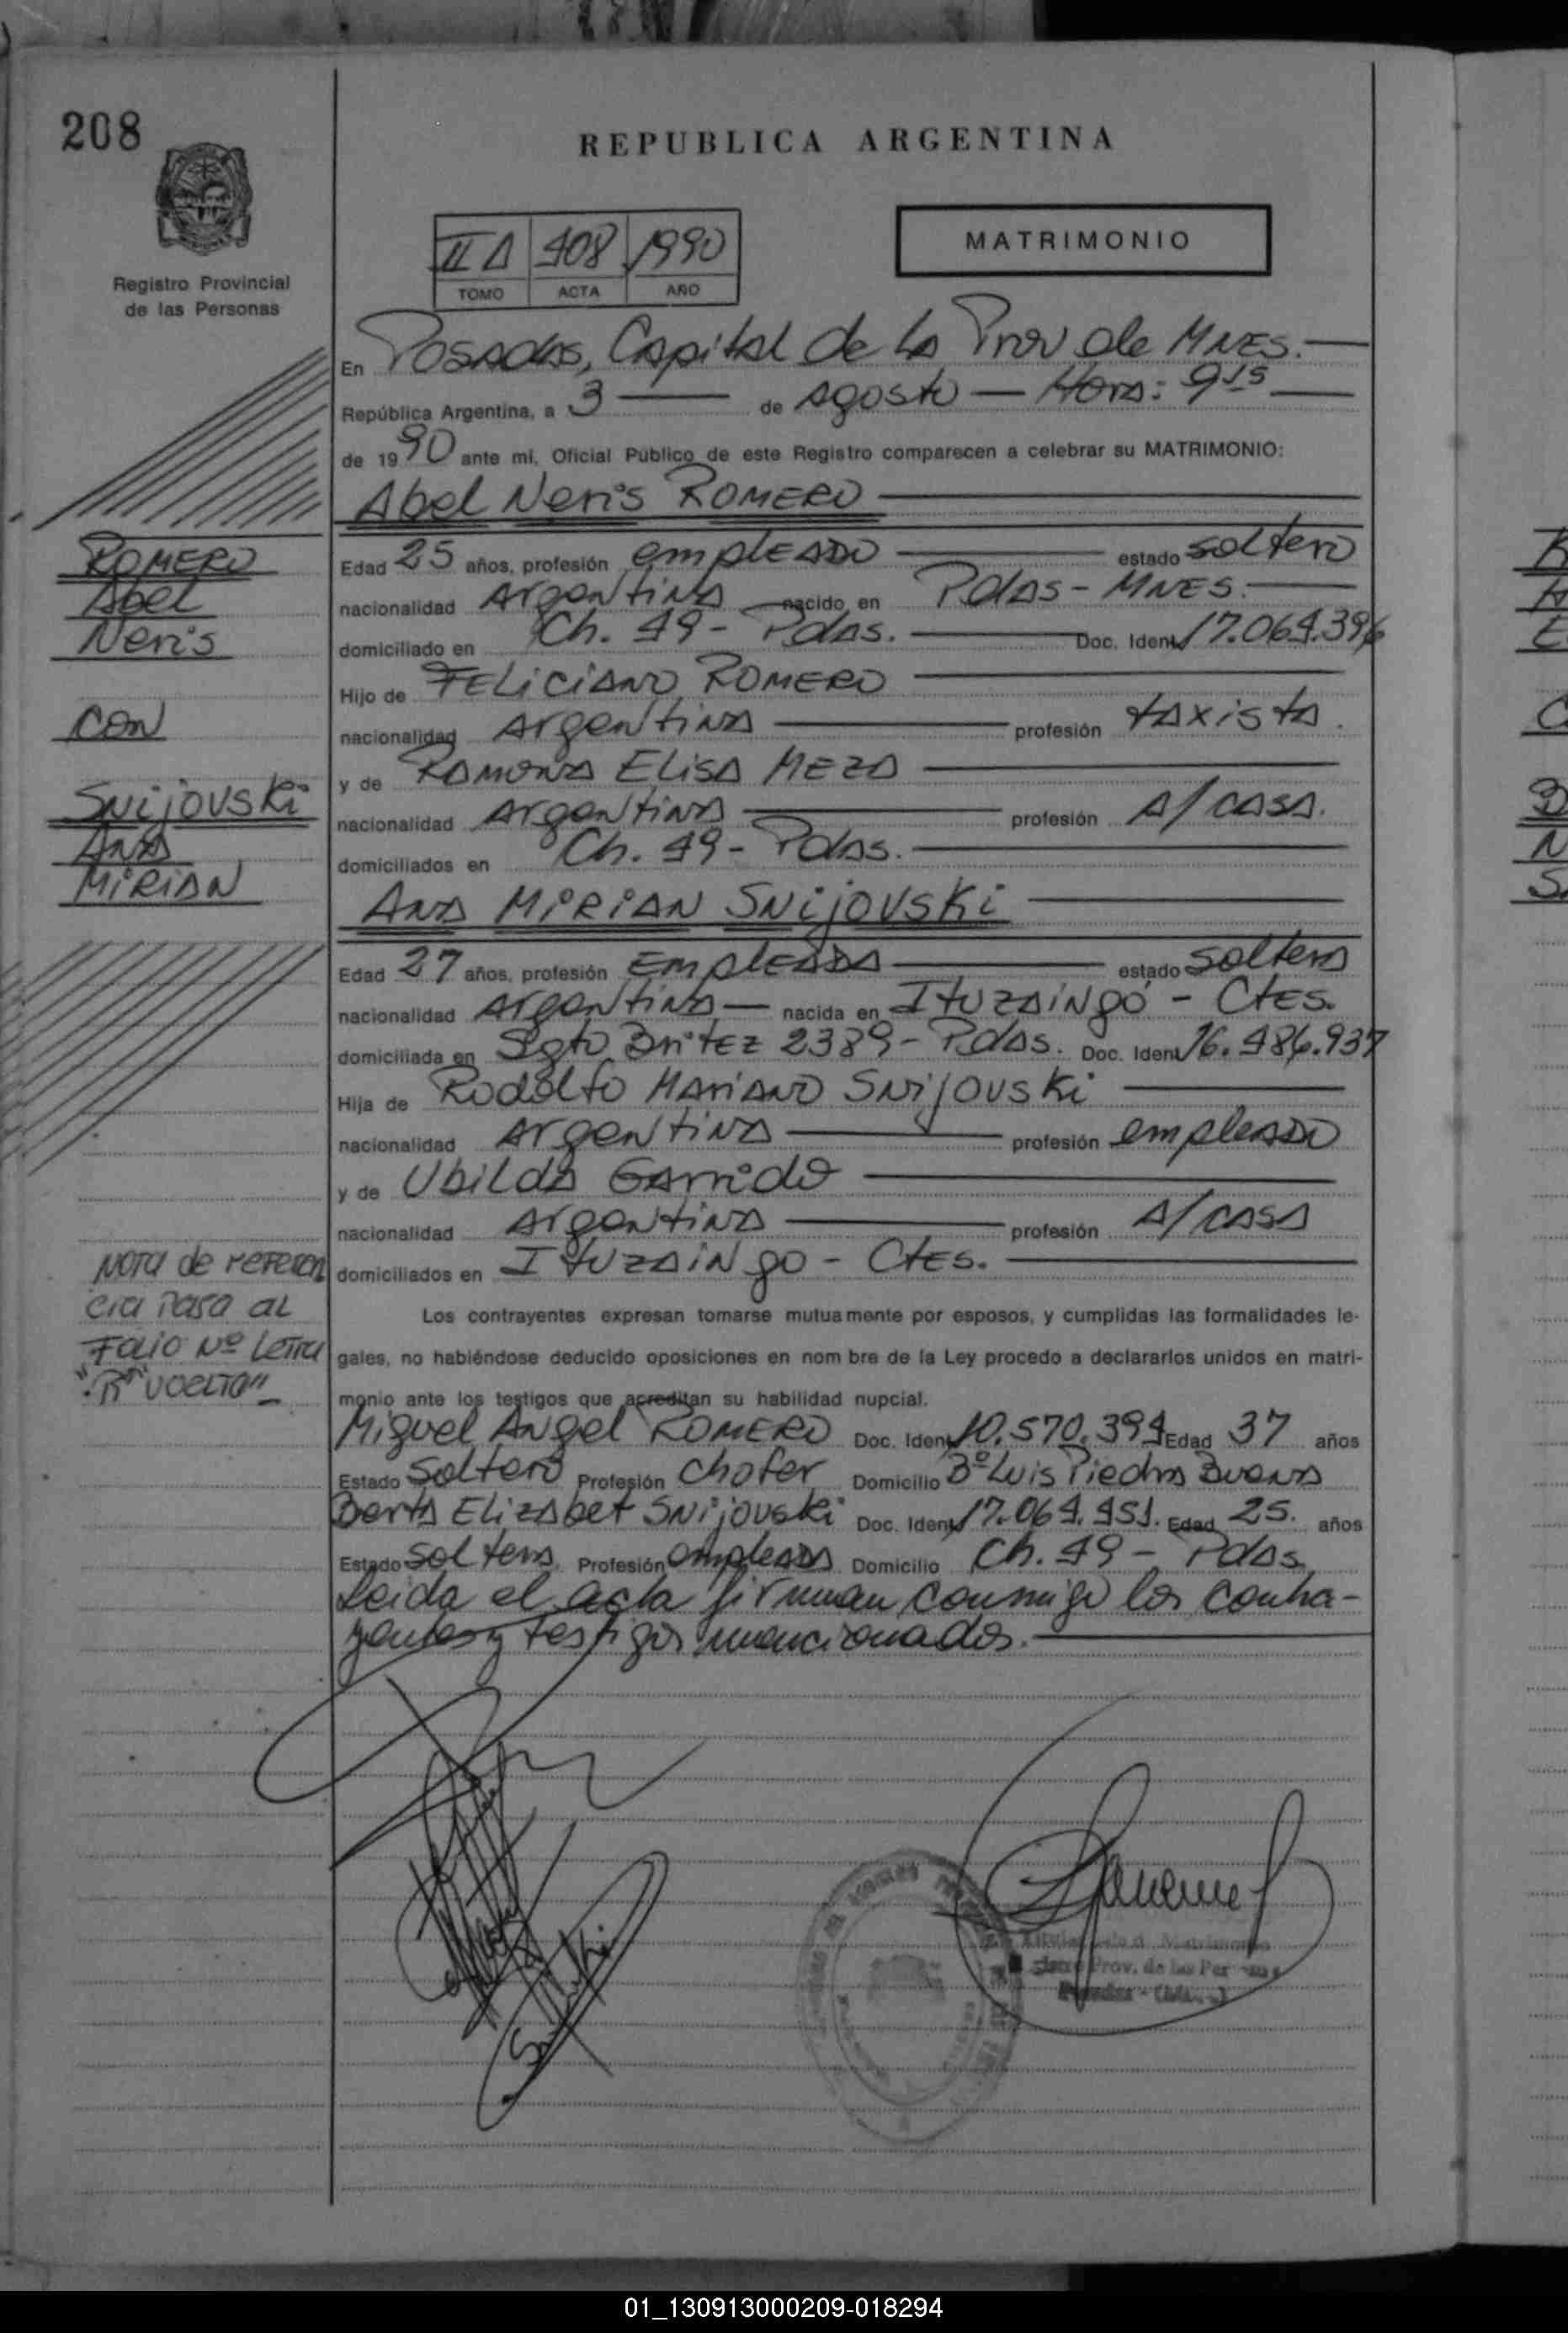 208
REPUBLICA ARGENTINA
Registro Provincial
de las Personas
II A 408 1990
TOMO ACTA AÑO
MATRIMONIO
En Posadas, Capital de la Prov de MNES.
República Argentina, a 3 de agosto - Hora: 9 15
de 1990 ante mi, Oficial Público de este Registro comparecen a celebrar su MATRIMONIO:
Abel Neris ROMERO
ROMERO
Abel
Neris
con
Snijovski
Ana
Mirian
Edad 25 años, profesión empleado estado soltero
nacionalidad Argentina nacido en Pdas - MNES.
domiciliado en Ch. 49 - Pdas. Doc. Ident. 17.064.396
Hijo de Feliciano ROMERO
nacionalidad Argentina profesión taxista.
y de Ramona Elisa Meza
nacionalidad Argentina profesión A/casa.
domiciliados en Ch. 49 - Pdas.
Ana Mirian Snijovski
Edad 27 años, profesión Empleada estado soltera
nacionalidad Argentina nacida en Ituzaingó - Ctes.
domiciliada en Sgto Britez 2389 - Pdas. Doc. Ident. 16.486.937
Hija de Rodolfo Mariano Snijovski
nacionalidad Argentina profesión empleado
y de Ubilda Garrido
nacionalidad Argentina profesión A/casa
domiciliados en Ituzaingo - Ctes.
Nota de referen
cia pasa al
Folio Nº Letra
"R" vuelta"
Los contrayentes expresan tomarse mutuamente por esposos, y cumplidas las formalidades le-
gales, no habiéndose deducido oposiciones en nombre de la Ley procedo a declararlos unidos en matri-
monio ante los testigos que acreditan su habilidad nupcial.
Miguel Angel ROMERO Doc. Ident. 10.570.394 Edad 37 años
Estado Soltero Profesión Chofer Domicilio Bº Luis Piedra Buena
Berta Elizabet Snijovski Doc. Ident. 17.064.451. Edad 25. años
Estado soltera Profesión empleada Domicilio Ch. 49 - Pdas.
Leida el acta firman conmigo los contra-
yentes y testigos mencionados.
Prov. de las Per
Posadas
01_130913000209-018294